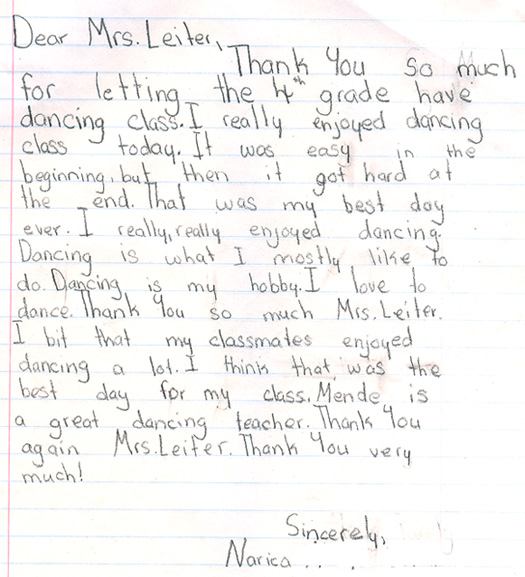 Dear Mrs. Leiter,
Thank You so much
for letting the 4th grade have
dancing class. I really enjoyed dancing
class today. It was easy in the
beginning, but then it got hard at
the end. That was my best day
ever. I really, really enjoyed dancing.
Dancing is what I mostly like to
do. Dancing is my hobby. I love to
dance. Thank You so much Mrs. Leiter.
I bit that my classmates enjoyed
dancing a lot. I think that was the
best day for my class. Mende is
a great dancing teacher. Thank You
again Mrs. Leiter. Thank You very
much!
Sincerely,
Narica